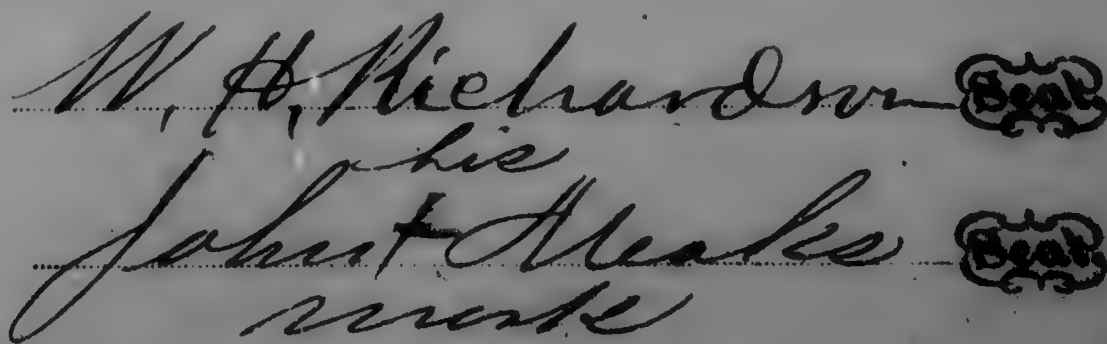 W. H. Richardson Seal
his
John + Meaks Seal
mark